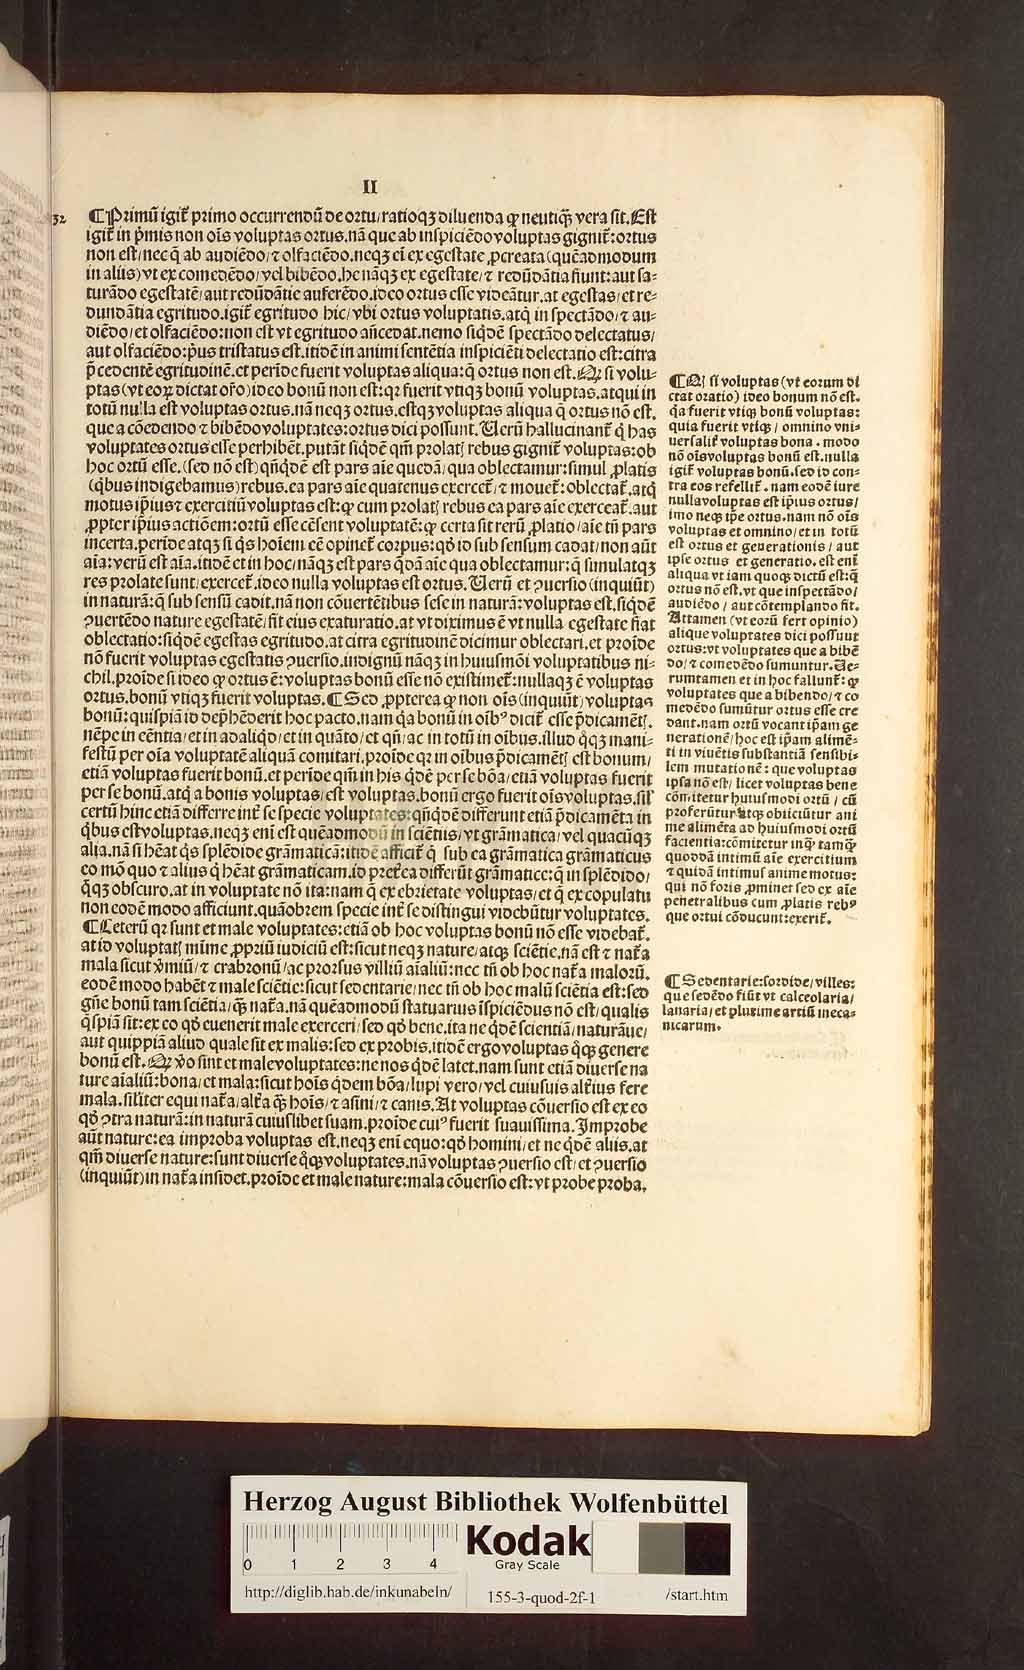 II
32
¶Primū igit̃ primo occurrendū de ortu/ratioqꝫ diluenda ꝙ neutiqꝫ̃ vera sit.Est
igit̃ in p̃mis non oīs voluptas ortus.nā que ab inspiciēdo voluptas gignit̃:ortus
non est/nec q̃ ab audiēdo/⁊ olfaciēdo.neqꝫ eī ex egestate ꝓcreata(quēadmodum
in aliis)vt ex comedēdo/vel bibēdo.he nāqꝫ ex egestate/⁊ redūdātia fiunt:aut sa⸗
turādo egestatē/aut redūdātie auferēdo.ideo ortus esse videātur.at egestas/et re⸗
dundātia egritudo.igit̃ egritudo hic/vbi ortus voluptatis.atq̃ in spectādo/⁊ au⸗
diēdo/et olfaciēdo:non est vt egritudo an̄cedat.nemo siqdē spectādo delectatus/
aut olfaciēdo:p̱us tristatus est.itidē in animi sentētia inspiciēti delectatio est:citra
p̄cedentē egritudinē.et perīde fuerit voluptas aliqua:q̄ ortus non est.Qꝫ si volu⸗
ptas(vt eoꝝ dictat or̃o)ideo bonū non est:qꝛ fuerit vtiqꝫ bonū voluptas.atqui in
totū nulla est voluptas ortus.nā neqꝫ ortus.estqꝫ voluptas aliqua q̄ ortus nō est.
que a cōedendo ⁊ bibēdo voluptates:ortus dici possunt.Uerū hallucinant̃ q̇ has
voluptates ortus esse perhibēt.putāt siqdē qm̄ prolatꝭ rebus gignit̃ voluptas:ob
hoc ortū esse.(sed nō est)qn̄qdē est pars aīe quedā/qua oblectamur:simul ꝓlatis
(q̇bus indigebamus)rebus.ea pars aīe quatenus exercet̃/⁊ mouet̃:oblectat̃.atq̃
motus ip̄ius ⁊ exercitiū voluptas est:ꝙ cum prolatꝭ rebus ea pars aīe exerceat̃.aut
ꝓpter ip̄ius actiōem:ortū esse cēsent voluptatē:ꝙ certa sit rerū ꝓlatio/aīe tn̄ pars
incerta.perīde atqꝫ si q̇s hoīem eē opinet̃ corpus:qȯ id sub sensum cadat/non aūt
aīa:verū est aīa.itidē et in hoc/nāqꝫ est pars q̄dā aīe qua oblectamur:q̄ simulatqꝫ
res prolate sunt/exercet̃.ideo nulla voluptas est ortus.Uerū et ꝯuersio(inquiūt)
in naturā:q̄ sub sensū cadit.nā non cōuertētibus sese in naturā:voluptas est.siqdē
ꝯuertēdo nature egestatē/fit eius exaturatio.at vt diximus ē vt nulla egestate fiat
oblectatio:siqdē egestas egritudo.at citra egritudinē dicimur oblectari.et proīde
nō fuerit voluptas egestatis ꝯuersio.indignū nāqꝫ in huiusmōi voluptatibus ni⸗
chil.proīde si ideo ꝙ ortus ē:voluptas bonū esse nō existimet̃:nullaqꝫ ē voluptas
ortus.bonū vtiqꝫ fuerit voluptas.¶Sed ꝓpterea ꝙ non oīs(inquiūt)voluptas
bonū:quispiā id dep̄hēderit hoc pacto.nam q̇a bonū in oībꝰ dicit̃ esse p̄dicamētꝭ.
nēpe in eēntia/et in adaliqd/et in quāto/et qn̄/ac in totū in oībus.illud q̊qꝫ mani⸗
festū per oīa voluptatē aliquā comitari.proīde qꝛ in oībus p̄dicamētꝭ est bonum/
etiā voluptas fuerit bonū.et perīde qm̄ in his q̇dē per se bōa/etiā voluptas fuerit
per se bonū.atq̃ a bonis voluptas/est voluptas.bonū ergo fuerit oīs voluptas.sil̃
certū hinc etiā differre int̃ se specie voluptates:qn̄qdē differunt etiā p̄dicamēta in
q̇bus est voluptas.neqꝫ enī est quēadmodū in sciētiis/vt grāmatica/vel quacūqꝫ
alia.nā si hēat q̇s splēdide grāmaticā:itidē afficit̃ q̇ sub ea grāmatica grāmaticus
eo mō quo ⁊ alius q̇ hēat grāmaticam.id pret̃ea differūt grāmatice:q̄ in splēdido/
q̊qꝫ obscuro.at in voluptate nō ita:nam q̄ ex ebrietate voluptas/et q̄ ex copulatu
non eodē modo afficiunt.quāobrem specie int̃ se distingui videbūtur voluptates.
¶Ceterū qꝛ sunt et male voluptates:etiā ob hoc voluptas bonū nō esse videbat̃.
at id voluptatꝭ mīme ꝓpriū iudiciū est:sicut neqꝫ nature/atqꝫ sciētie.nā est ⁊ nat̃a
mala sicut v̓miū/⁊ crabronū/ac prorsus viliū aīaliū:nec tn̄ ob hoc nat̃a malorū.
eodē modo habēt ⁊ male sciētie:sicut sedentarie/nec tn̄ ob hoc malū sciētia est:sed
gn̄e bonū tam sciētia/qꝫ̃ nat̃a.nā quēadmodū statuarius īspiciēdus nō est/qualis
q̇spiā sit:ex eo qȯ euenerit male exerceri/sed qȯ bene.ita ne q̇dē scientiā/naturāue/
aut quippiā aliud quale sit ex malis:sed ex probis.itidē ergo voluptas q̊qꝫ genere
bonū est.Qꝫ v̓o sint et male voluptates:ne nos q̇dē latet.nam sunt etiā diuerse na
ture aīaliū:bona/et mala:sicut hoīs q̇dem bōa/lupi vero/vel cuiusuis alt̃ius fere
mala.sil̓iter equi nat̃a/alt̃a qꝫ̃ hoīs/⁊ asīni/⁊ canis.At voluptas cōuersio est ex eo
qȯ ꝯtra naturā:in naturā cuiuslibet suam.proīde cuiꝰ fuerit suauissima.Improbe
aūt nature:ea improba voluptas est.neqꝫ enī equo:qȯ homini/et ne q̇dē aliis.at
qm̄ diuerse nature:sunt diuerse q̊qꝫ voluptates.nā voluptas ꝯuersio est/et ꝯuersio
(inquiūt)in nat̃a insidet.proīde et male nature:mala cōuersio est:vt probe proba.
¶Qꝫ si voluptas (vt eorum di
ctat oratio) ideo bonum nō est.
q̇a fuerit vtiqꝫ bonū voluptas:
quia fuerit vtiqꝫ/ omnino vni⸗
uersalit̃ voluptas bona . modo
nō oīs voluptas bonū est.nulla
igit̃ voluptas bonū.sed id con⸗
tra eos refellit̃ . nam eodē iure
nulla voluptas est ip̄ius ortus/
imo neqꝫ ip̄e ortus.nam nō oīs
voluptas et omnino/et in totū
est ortus et generationis / aut
ipse ortus et generatio.est enī
aliqua vt iam quoqꝫ dictū est:q̄
ortus nō est.vt que inspectādo/
audiēdo / aut cōtemplando fit.
Attamen (vt eorū fert opinio)
alique voluptates dici possunt
ortus:vt voluptates que a bibē
do/⁊ comedēdo sumuntur.Ue⸗
rumtamen et in hoc fallunt̃: ꝙ
voluptates que a bibendo/⁊ co
medēdo sumūtur ortus esse cre
dant.nam ortū vocant ip̄am ge
nerationē/hoc est ip̄am alimē⸗
ti in viuētis substantiā sensibi⸗
lem mutationē: que voluptas
ipsa nō est/ licet voluptas bene
cōmitetur huiusmodi ortū / cū
proferūtur atqꝫ obiiciūtur ani
me alimēta ad huiusmodi ortū
facientia:cōmitetur inqꝫ tamqꝫ̃
quoddā intimū aīe exercitium
⁊ quidā intimus anime motus:
qui nō foris ꝓminet sed ex aīe
penetralibus cum ꝓlatis rebꝰ
que ortui cōducunt:exerit̃.
¶Sedentarie:sordide/villes:
que sedēdo fiūt vt calceolaria/
lanaria/et plurime artiū meca⸗
nicarum.
Herzog August Bibliothek Wolfenbüttel
Kodak
Gray Scale
0 1 2 3 4
http://diglib.hab.de/inkunabeln/ 155-3-quod-2f-1 /start.htm